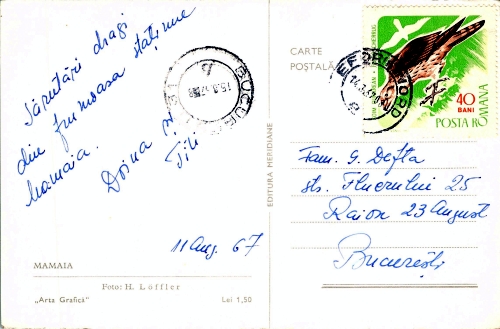 Sărutări dragi
din frumoasa stațiune
Mamaia.
Doina și
Titi
11 Aug. 67
MAMAIA
Foto: H. Löffler
„Arta Grafică”
Lei 1,50
EDITURA MERIDIANE
CARTE
POȘTALĂ
EFORIE NORD
BUCUR
40
BANI
POSTA ROMANA
Fam. G. Defta
str. Fluerului 25
Raion 23 August
București